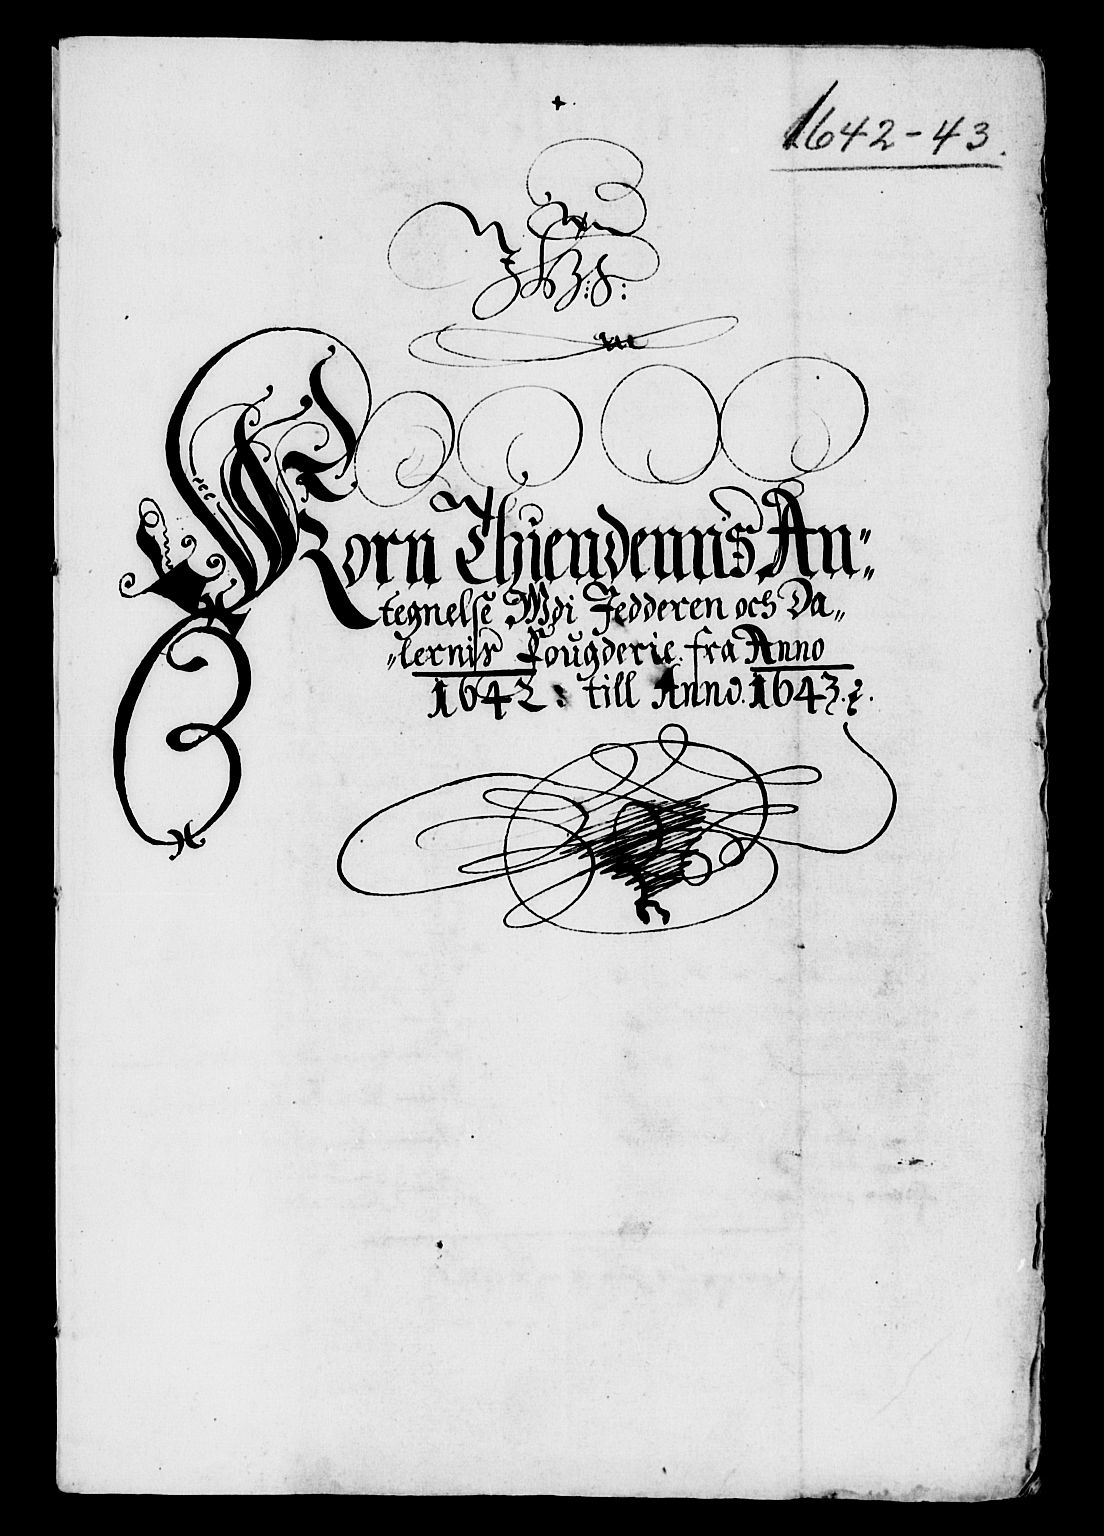 1642-43.
Korn Thiendenns An„
tegnelse Wdi Jedderen och Da„
„lernis Fougderie. fra Anno
1642: till Anno. 1643.